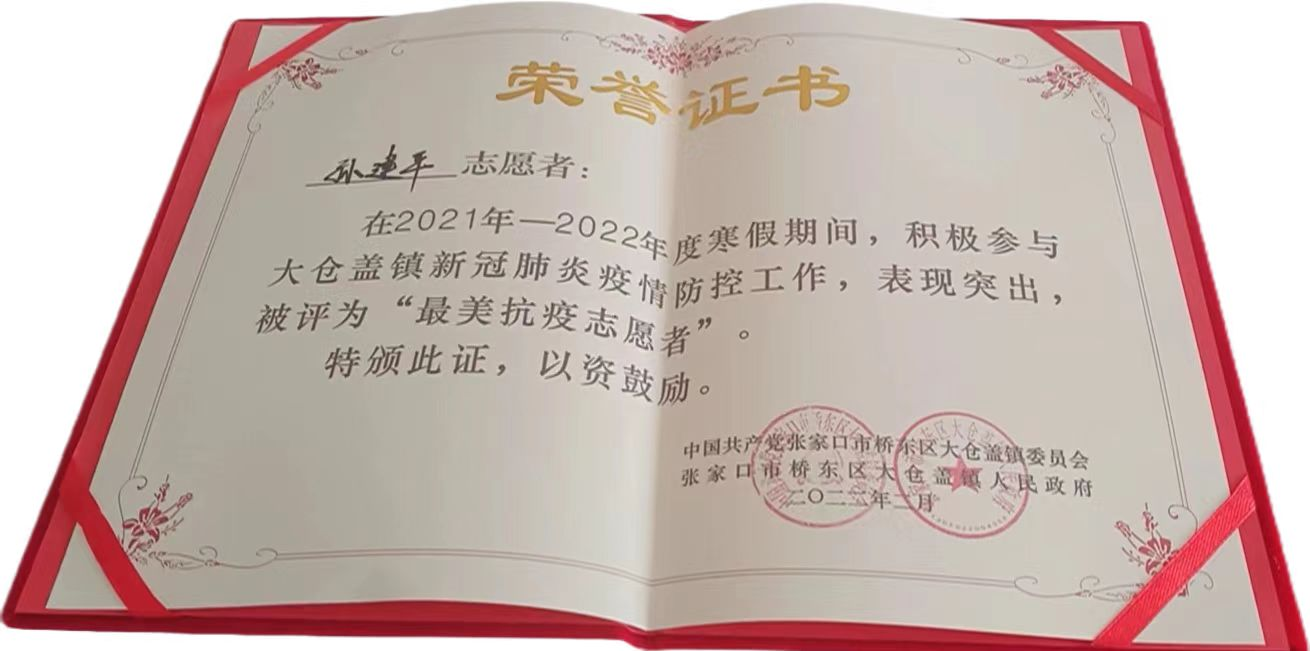 荣誉证书
孙建平 志愿者：
在2021年—2022年度寒假期间，积极参与
大仓盖镇新冠肺炎疫情防控工作，表现突出，
被评为“最美抗疫志愿者”。
特颁此证，以资鼓励。
中国共产党张家口市桥东区大仓盖镇委员会
张家口市桥东区大仓盖镇人民政府
二〇二二年二月